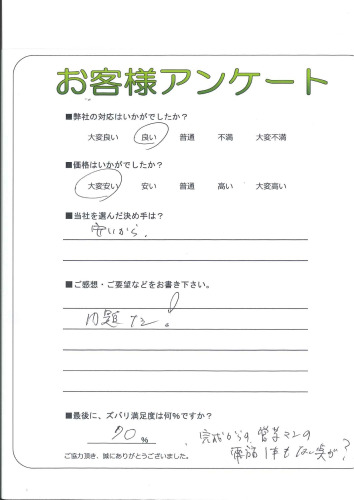 お客様アンケート
■弊社の対応はいかがでしたか?
大変良い 良い 普通 不満 大変不満
■価格はいかがでしたか?
大変安い 安い 普通 高い 大変高い
■当社を選んだ決め手は?
安いから、
■ご感想・ご要望などをお書き下さい。
問題なし。
■最後に、ズバリ満足度は何%ですか?
70 %
完成からの営業マンの
電話1本もない点が?
ご協力頂き、誠にありがとうございました。